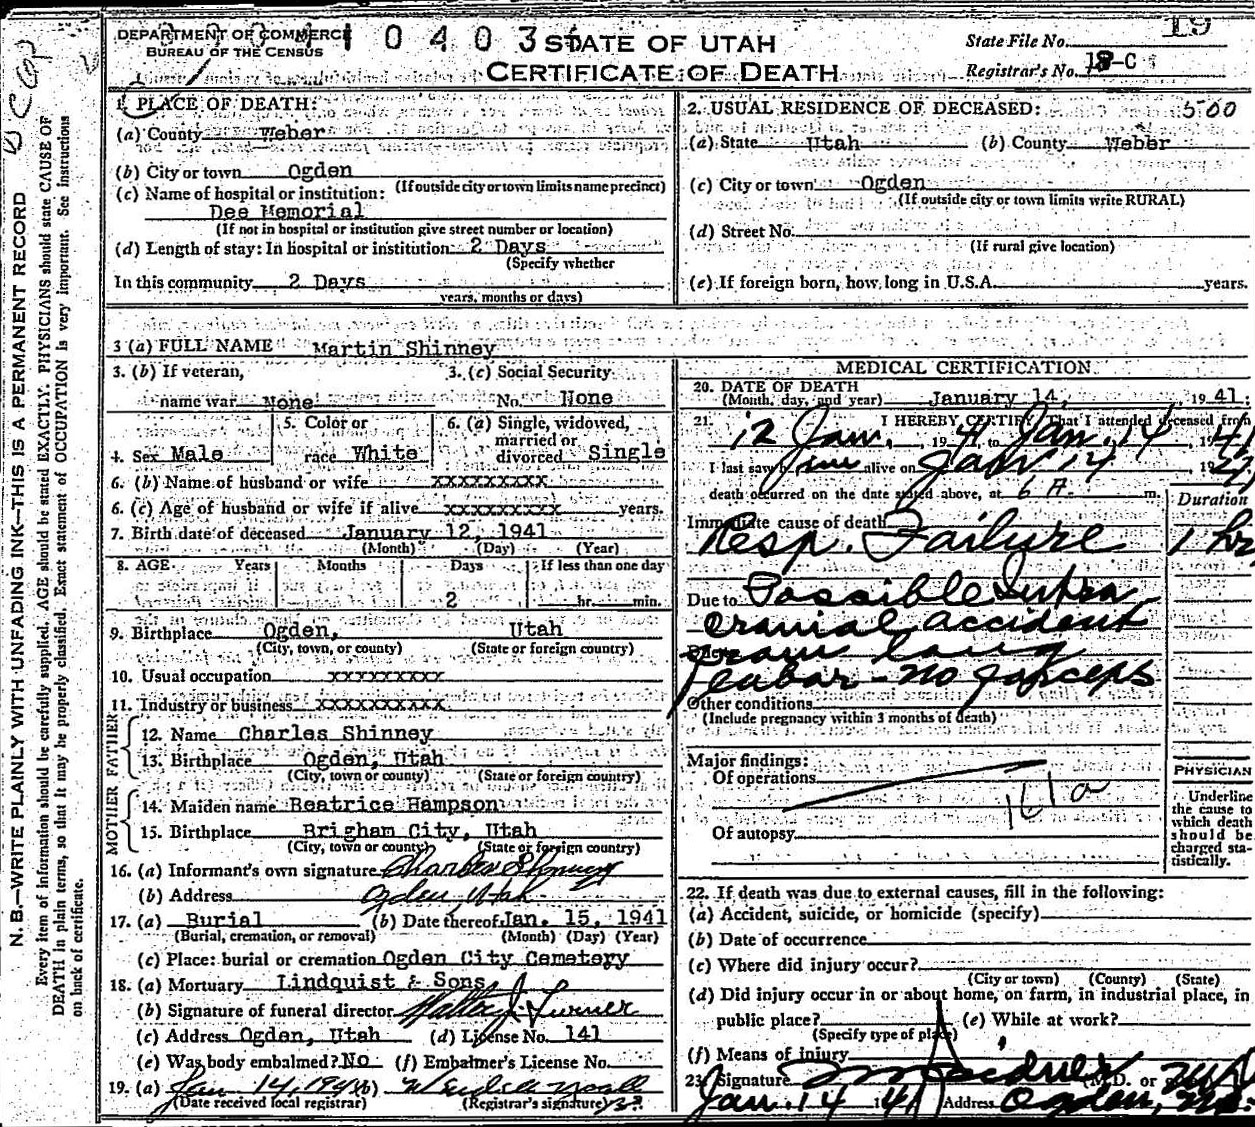 DEPARTMENT OF COMMERCE
BUREAU OF THE CENSUS
10403
STATE OF UTAH
CERTIFICATE OF DEATH
State File No. 19
Registrar's No. 18-C
N. B.—WRITE PLAINLY WITH UNFADING INK—THIS IS A PERMANENT RECORD
Every item of information should be carefully supplied. AGE should be stated EXACTLY. PHYSICIANS should state CAUSE OF
DEATH in plain terms, so that it may be properly classified. Exact statement of OCCUPATION is very important. See instructions
on back of certificate.
1. PLACE OF DEATH:
(a) County Weber
(b) City or town Ogden
(If outside city or town limits name precinct)
(c) Name of hospital or institution:
Dee Memorial
(If not in hospital or institution give street number or location)
(d) Length of stay: In hospital or institution 2 Days
(Specify whether
In this community 2 Days
years, months or days)
2. USUAL RESIDENCE OF DECEASED: 500
(a) State Utah (b) County Weber
(c) City or town Ogden
(If outside city or town limits write RURAL)
(d) Street No.
(If rural give location)
(e) If foreign born, how long in U.S.A. years.
3 (a) FULL NAME Martin Shinney
3. (b) If veteran,
name war None
3. (c) Social Security
No. None
4. Sex Male
5. Color or
race White
6. (a) Single, widowed,
married or
divorced Single
6. (b) Name of husband or wife xxxxxxxxx
6. (c) Age of husband or wife if alive xxxxxxxxx years.
7. Birth date of deceased January 12, 1941
(Month) (Day) (Year)
8. AGE Years Months Days If less than one day
2 hr. min.
9. Birthplace Ogden, Utah
(City, town, or county) (State or foreign country)
10. Usual occupation xxxxxxxxx
11. Industry or business xxxxxxxxxx
FATHER
12. Name Charles Shinney
13. Birthplace Ogden, Utah
(City, town or county) (State or foreign country)
MOTHER
14. Maiden name Beatrice Hampson
15. Birthplace Brigham City, Utah
(City, town or county) (State or foreign country)
16. (a) Informant's own signature Charles Shinney
(b) Address Ogden, Utah
17. (a) Burial (b) Date thereof Jan. 15, 1941
(Burial, cremation, or removal) (Month) (Day) (Year)
(c) Place: burial or cremation Ogden City Cemetery
18. (a) Mortuary Lindquist & Sons
(b) Signature of funeral director Walter J. Turner
(c) Address Ogden, Utah (d) License No. 141
(e) Was body embalmed? No (f) Embalmer's License No.
19. (a) Jan 14, 1941 (b)
(Date received local registrar) (Registrar's signature)
MEDICAL CERTIFICATION
20. DATE OF DEATH
(Month, day, and year) January 14, 1941.
21. I HEREBY CERTIFY That I attended deceased from
12 Jan., 1941 to Jan. 14, 1941
I last saw him alive on Jan 14, 19
death occurred on the date stated above, at 6 A. m.
Duration
Immediate cause of death
Resp. Failure 1 hr
Due to Possible Intra
cranial accident
Due to from long
labor - no forceps
Other conditions
(Include pregnancy within 3 months of death)
Major findings:
Of operations
161a
Of autopsy
PHYSICIAN
Underline
the cause to
which death
should be
charged sta-
tistically.
22. If death was due to external causes, fill in the following:
(a) Accident, suicide, or homicide (specify)
(b) Date of occurrence
(c) Where did injury occur?
(City or town) (County) (State)
(d) Did injury occur in or about home, on farm, in industrial place, in
public place? (e) While at work?
(Specify type of place)
(f) Means of injury
23. Signature (M.D. or
Jan. 14 1941 Address Ogden,